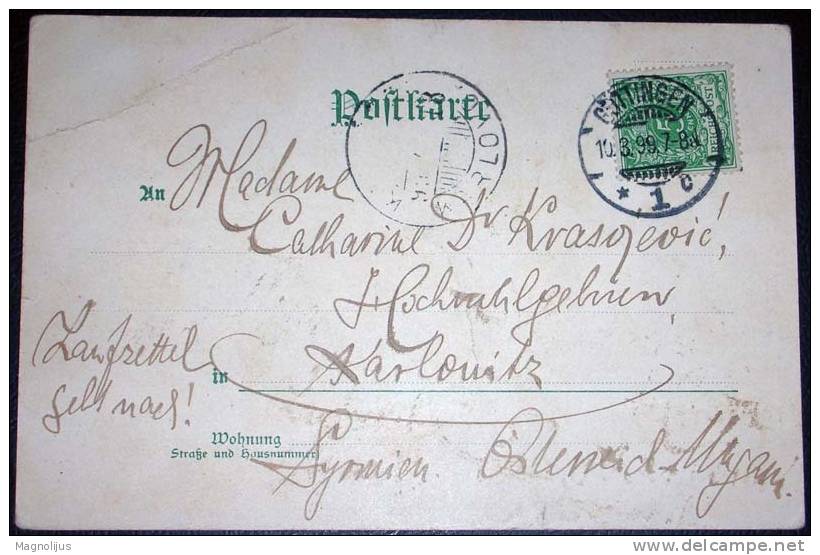 Postkarte
GÖTTINGEN
10.3.99.7-8N.
* 1 c
KARLOV
An Madame
Catharine Dr Krasojević,
Hochwohlgeboren
Laufzettel
geht nach!
in Karlowitz
Wohnung
Straße und Hausnummer
Syrmien Österreich-Ungarn.
Magnolijus
www.delcampe.net